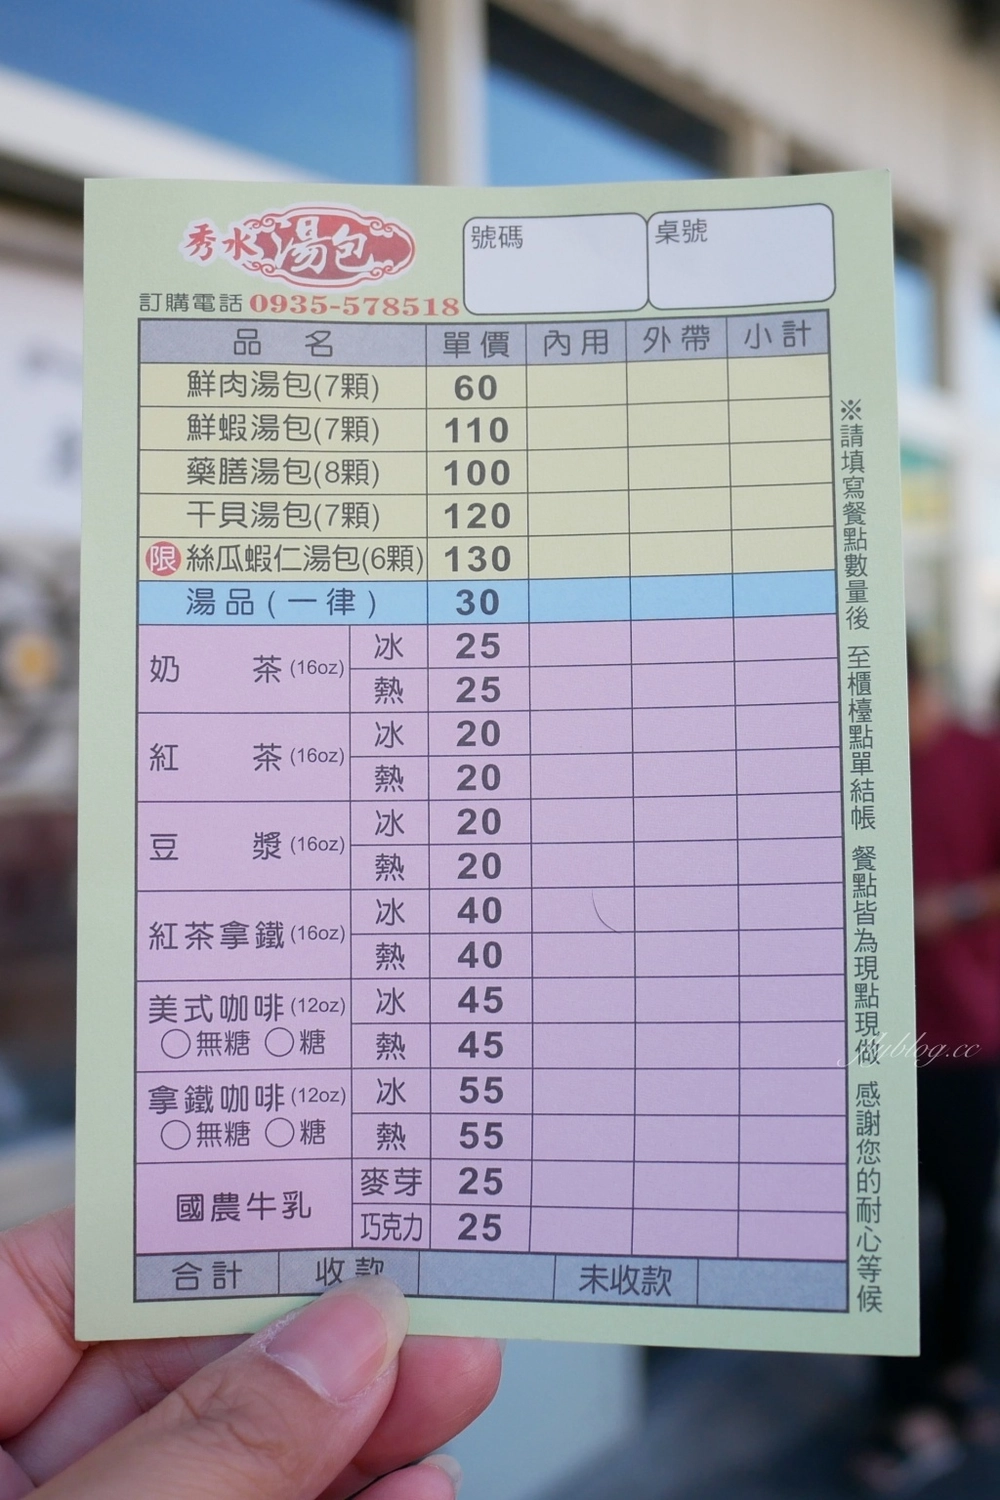 秀水湯包
訂購電話 0935-578518
號碼
桌號
品名 單價 內用 外帶 小計
鮮肉湯包(7顆) 60
鮮蝦湯包(7顆) 110
藥膳湯包(8顆) 100
干貝湯包(7顆) 120
限 絲瓜蝦仁湯包(6顆) 130
湯品(一律) 30
奶茶(16oz) 冰 25
熱 25
紅茶(16oz) 冰 20
熱 20
豆漿(16oz) 冰 20
熱 20
紅茶拿鐵(16oz) 冰 40
熱 40
美式咖啡(12oz) 冰 45
○無糖 ○糖 熱 45
拿鐵咖啡(12oz) 冰 55
○無糖 ○糖 熱 55
國農牛乳 麥芽 25
巧克力 25
合計 收款 未收款
※請填寫餐點數量後 至櫃檯點單結帳 餐點皆為現點現做 感謝您的耐心等候
flyblog.cc